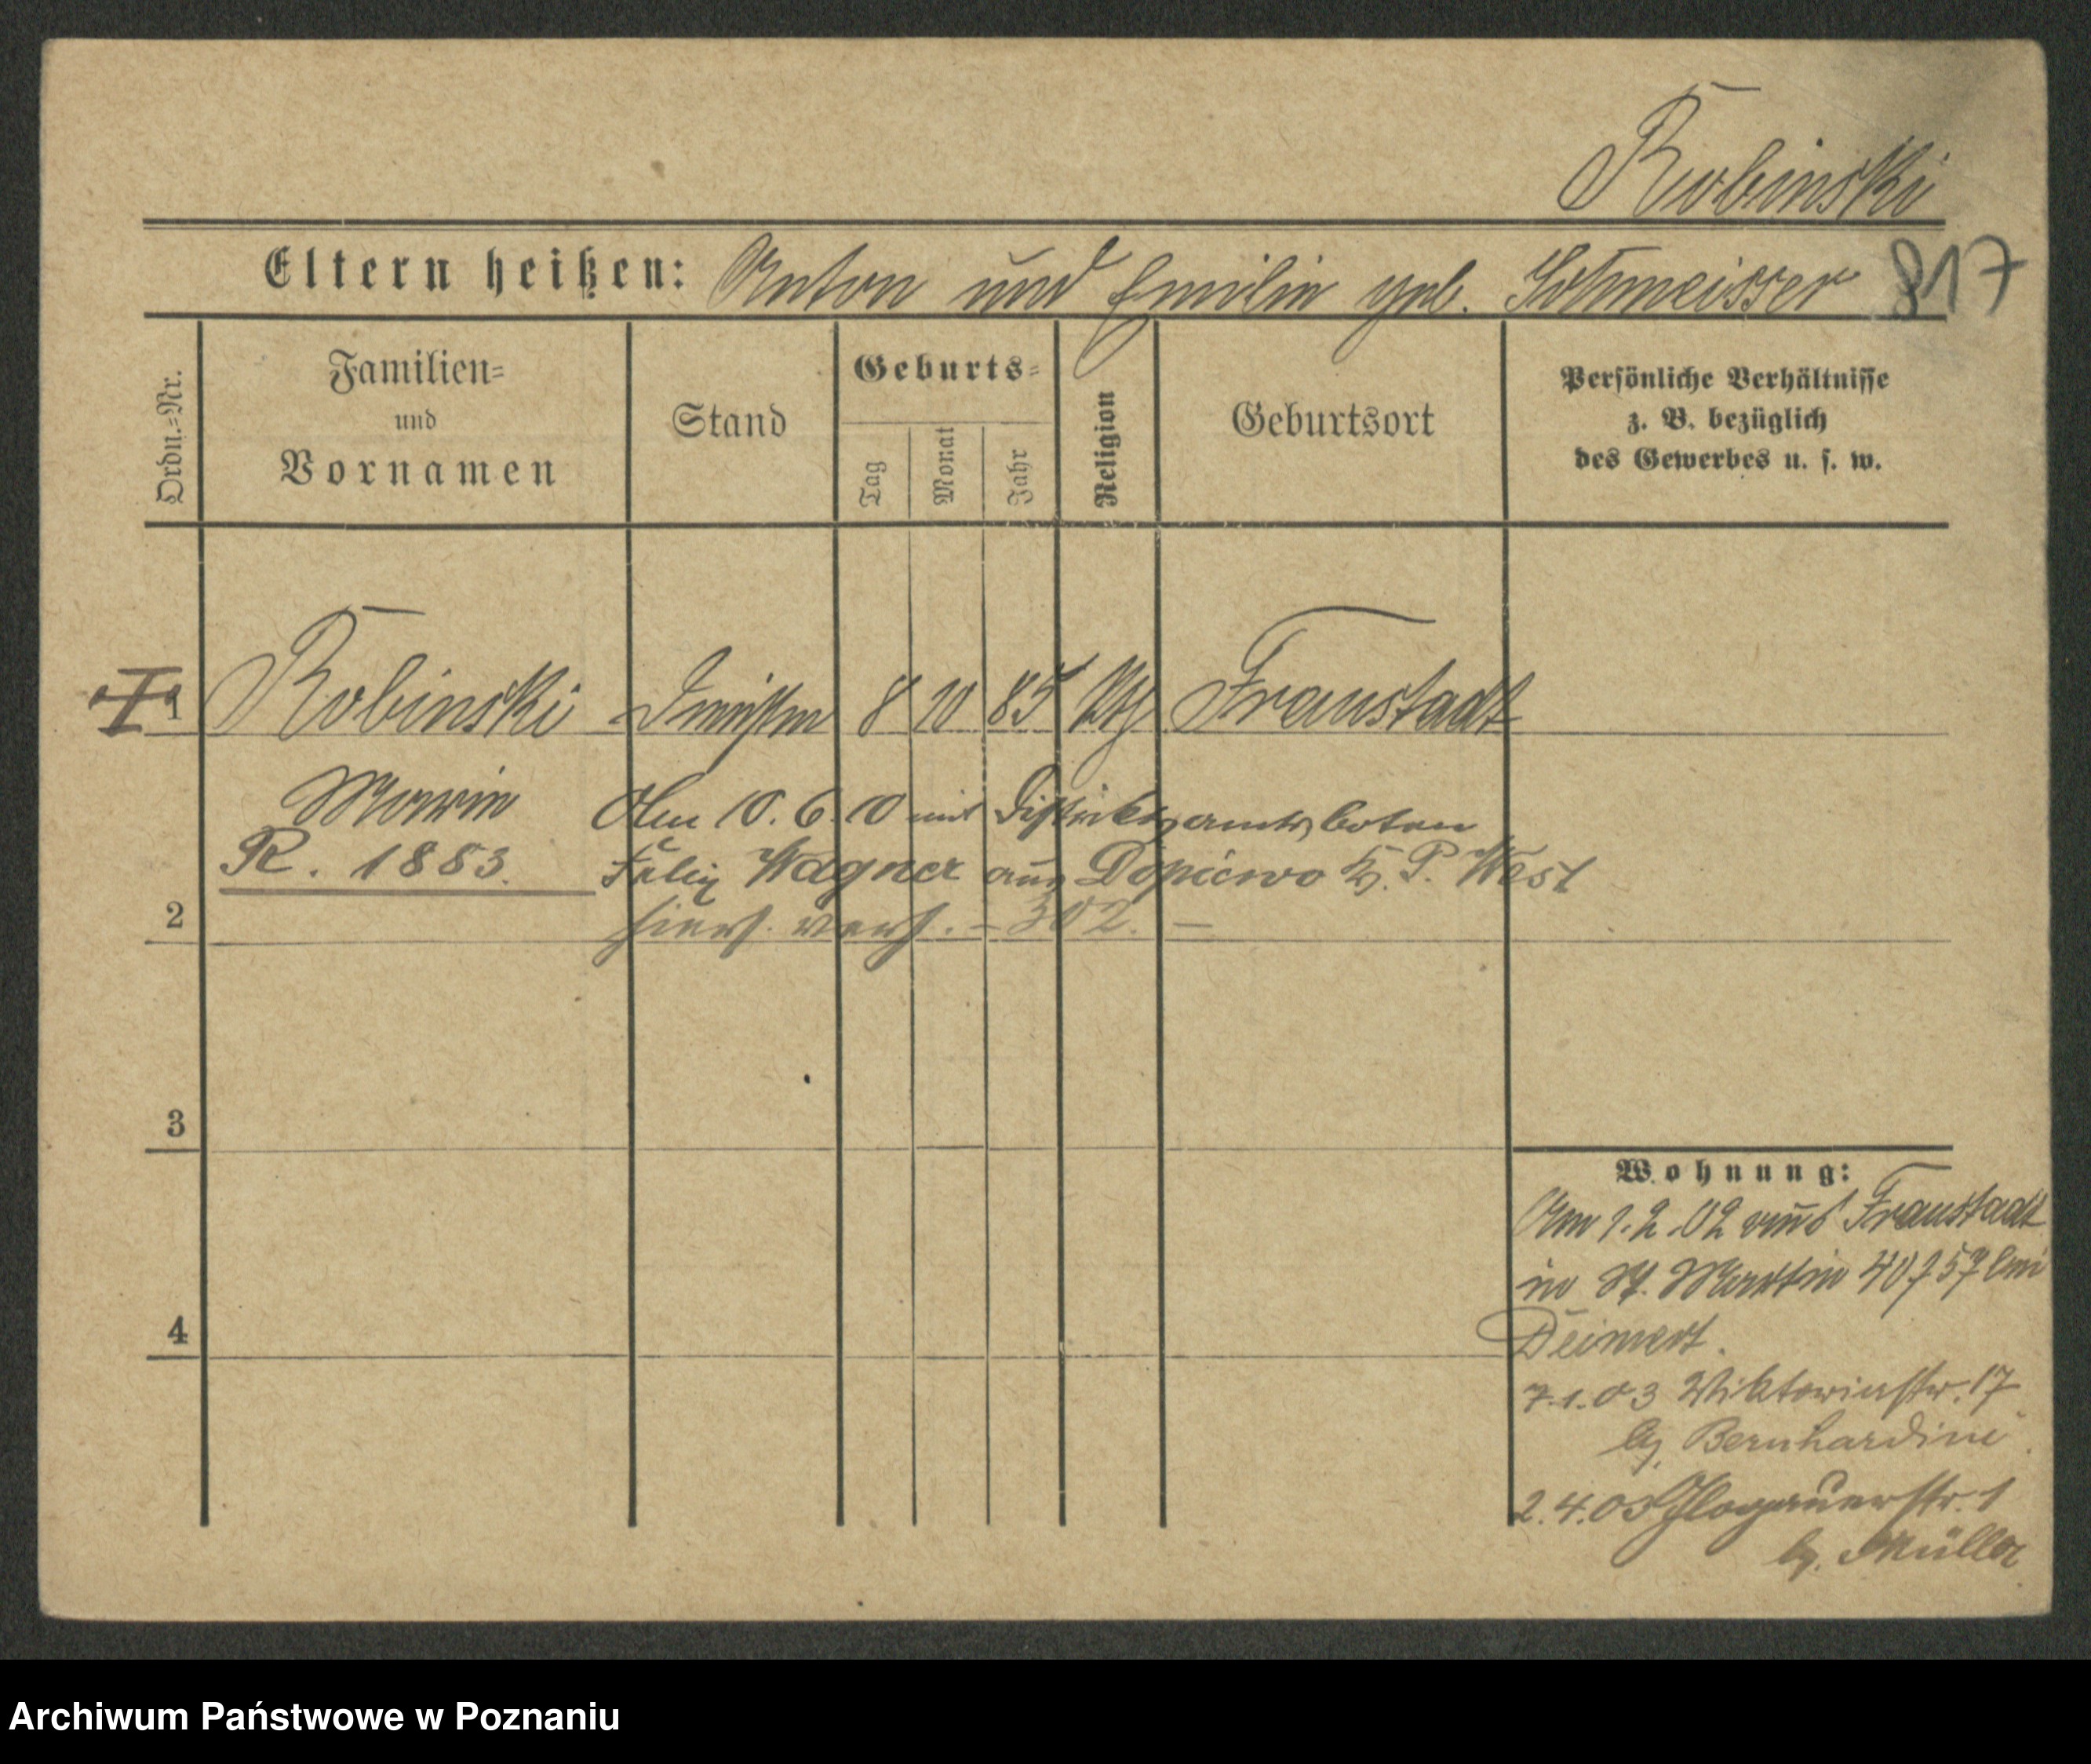 Rubinski
Eltern heißen: Anton und Emilie geb. Schmeisser 817
Ordn.-Nr.
Familien=
und
Vornamen
Stand
Geburts=
Tag
Monat
Jahr
Religion
Geburtsort
Persönliche Verhältnisse
z. B. bezüglich
des Gewerbes u. s. w.
1 Robinski 8 10 85 kth Fraustadt
Marie
R. 1883.
Am 10. 6. 10 mit Distriktsamtsboten
Felix Wagner aus Dopiewo Kr. P. West
2
hiers. verh. - 302. -
3
4
Wohnung:
Am 1.2.02 aus Fraustadt
in St. Martin 40 bei
7.1.03 Viktoriastr. 17
bei Bernhardine
2.4.03 Glogauerstr. 1
b. Müller
Archiwum Państwowe w Poznaniu